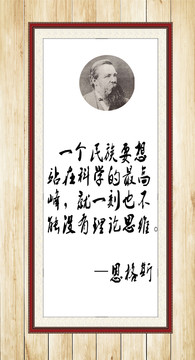 一个民族要想
站在科学的最高
峰，就一刻也不
能没有理论思维。
—恩格斯